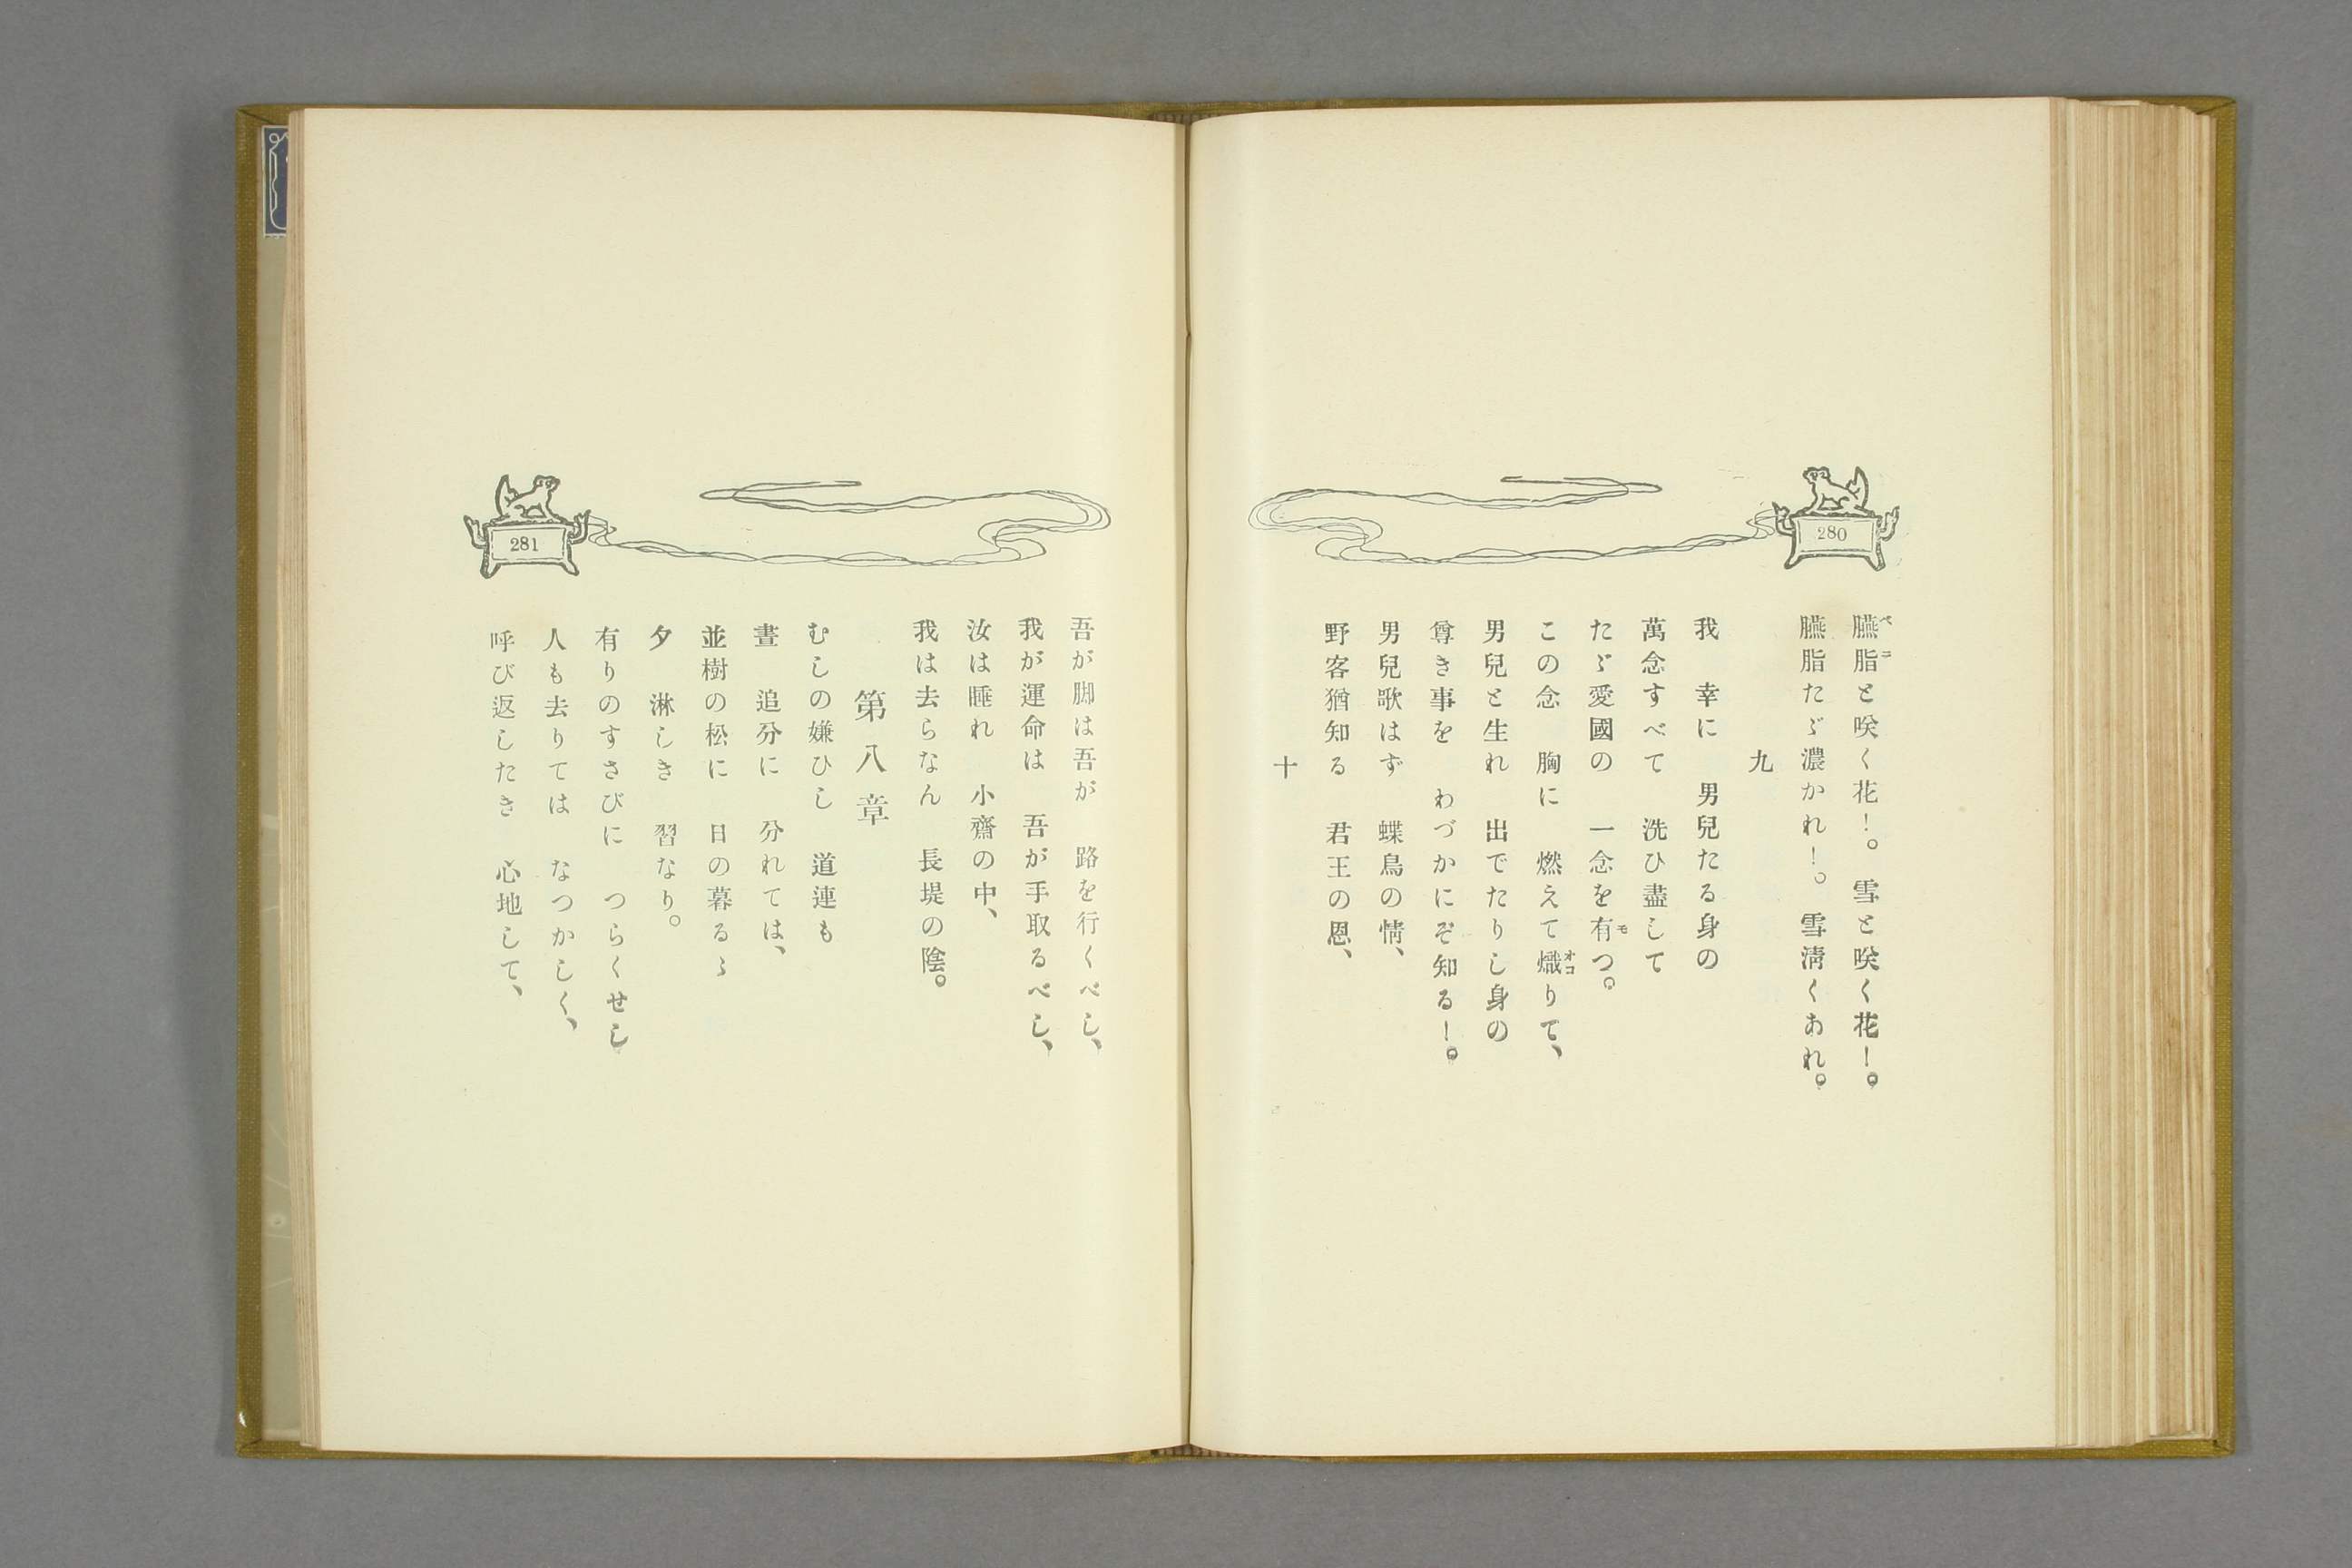 280
臙脂と咲く花！。　雪と咲く花！。
臙脂たゞ濃かれ！。　雪淸くあれ。
九
我　幸に　男兒たる身の
萬念すべて　洗ひ盡して
たゞ愛國の　一念を有つ。
この念　胸に　燃えて熾りて、
男兒と生れ　出でたりし身の
尊き事を　わづかにぞ知る！。
男兒歌はず　蝶鳥の情、
野客猶知る　君王の恩、
十
281
吾が脚は吾が　路を行くべし、
我が運命は　吾が手取るべし、
汝は睡れ　小齋の中、
我は去らなん　長堤の陰。
第八章
むしの嫌ひし　道連も
晝　追分に　分れては、
並樹の松に　日の暮るゝ
夕　淋しき　習なり。
有りのすさびに　つらくせし
人も去りては　なつかしく、
呼び返したき　心地して、